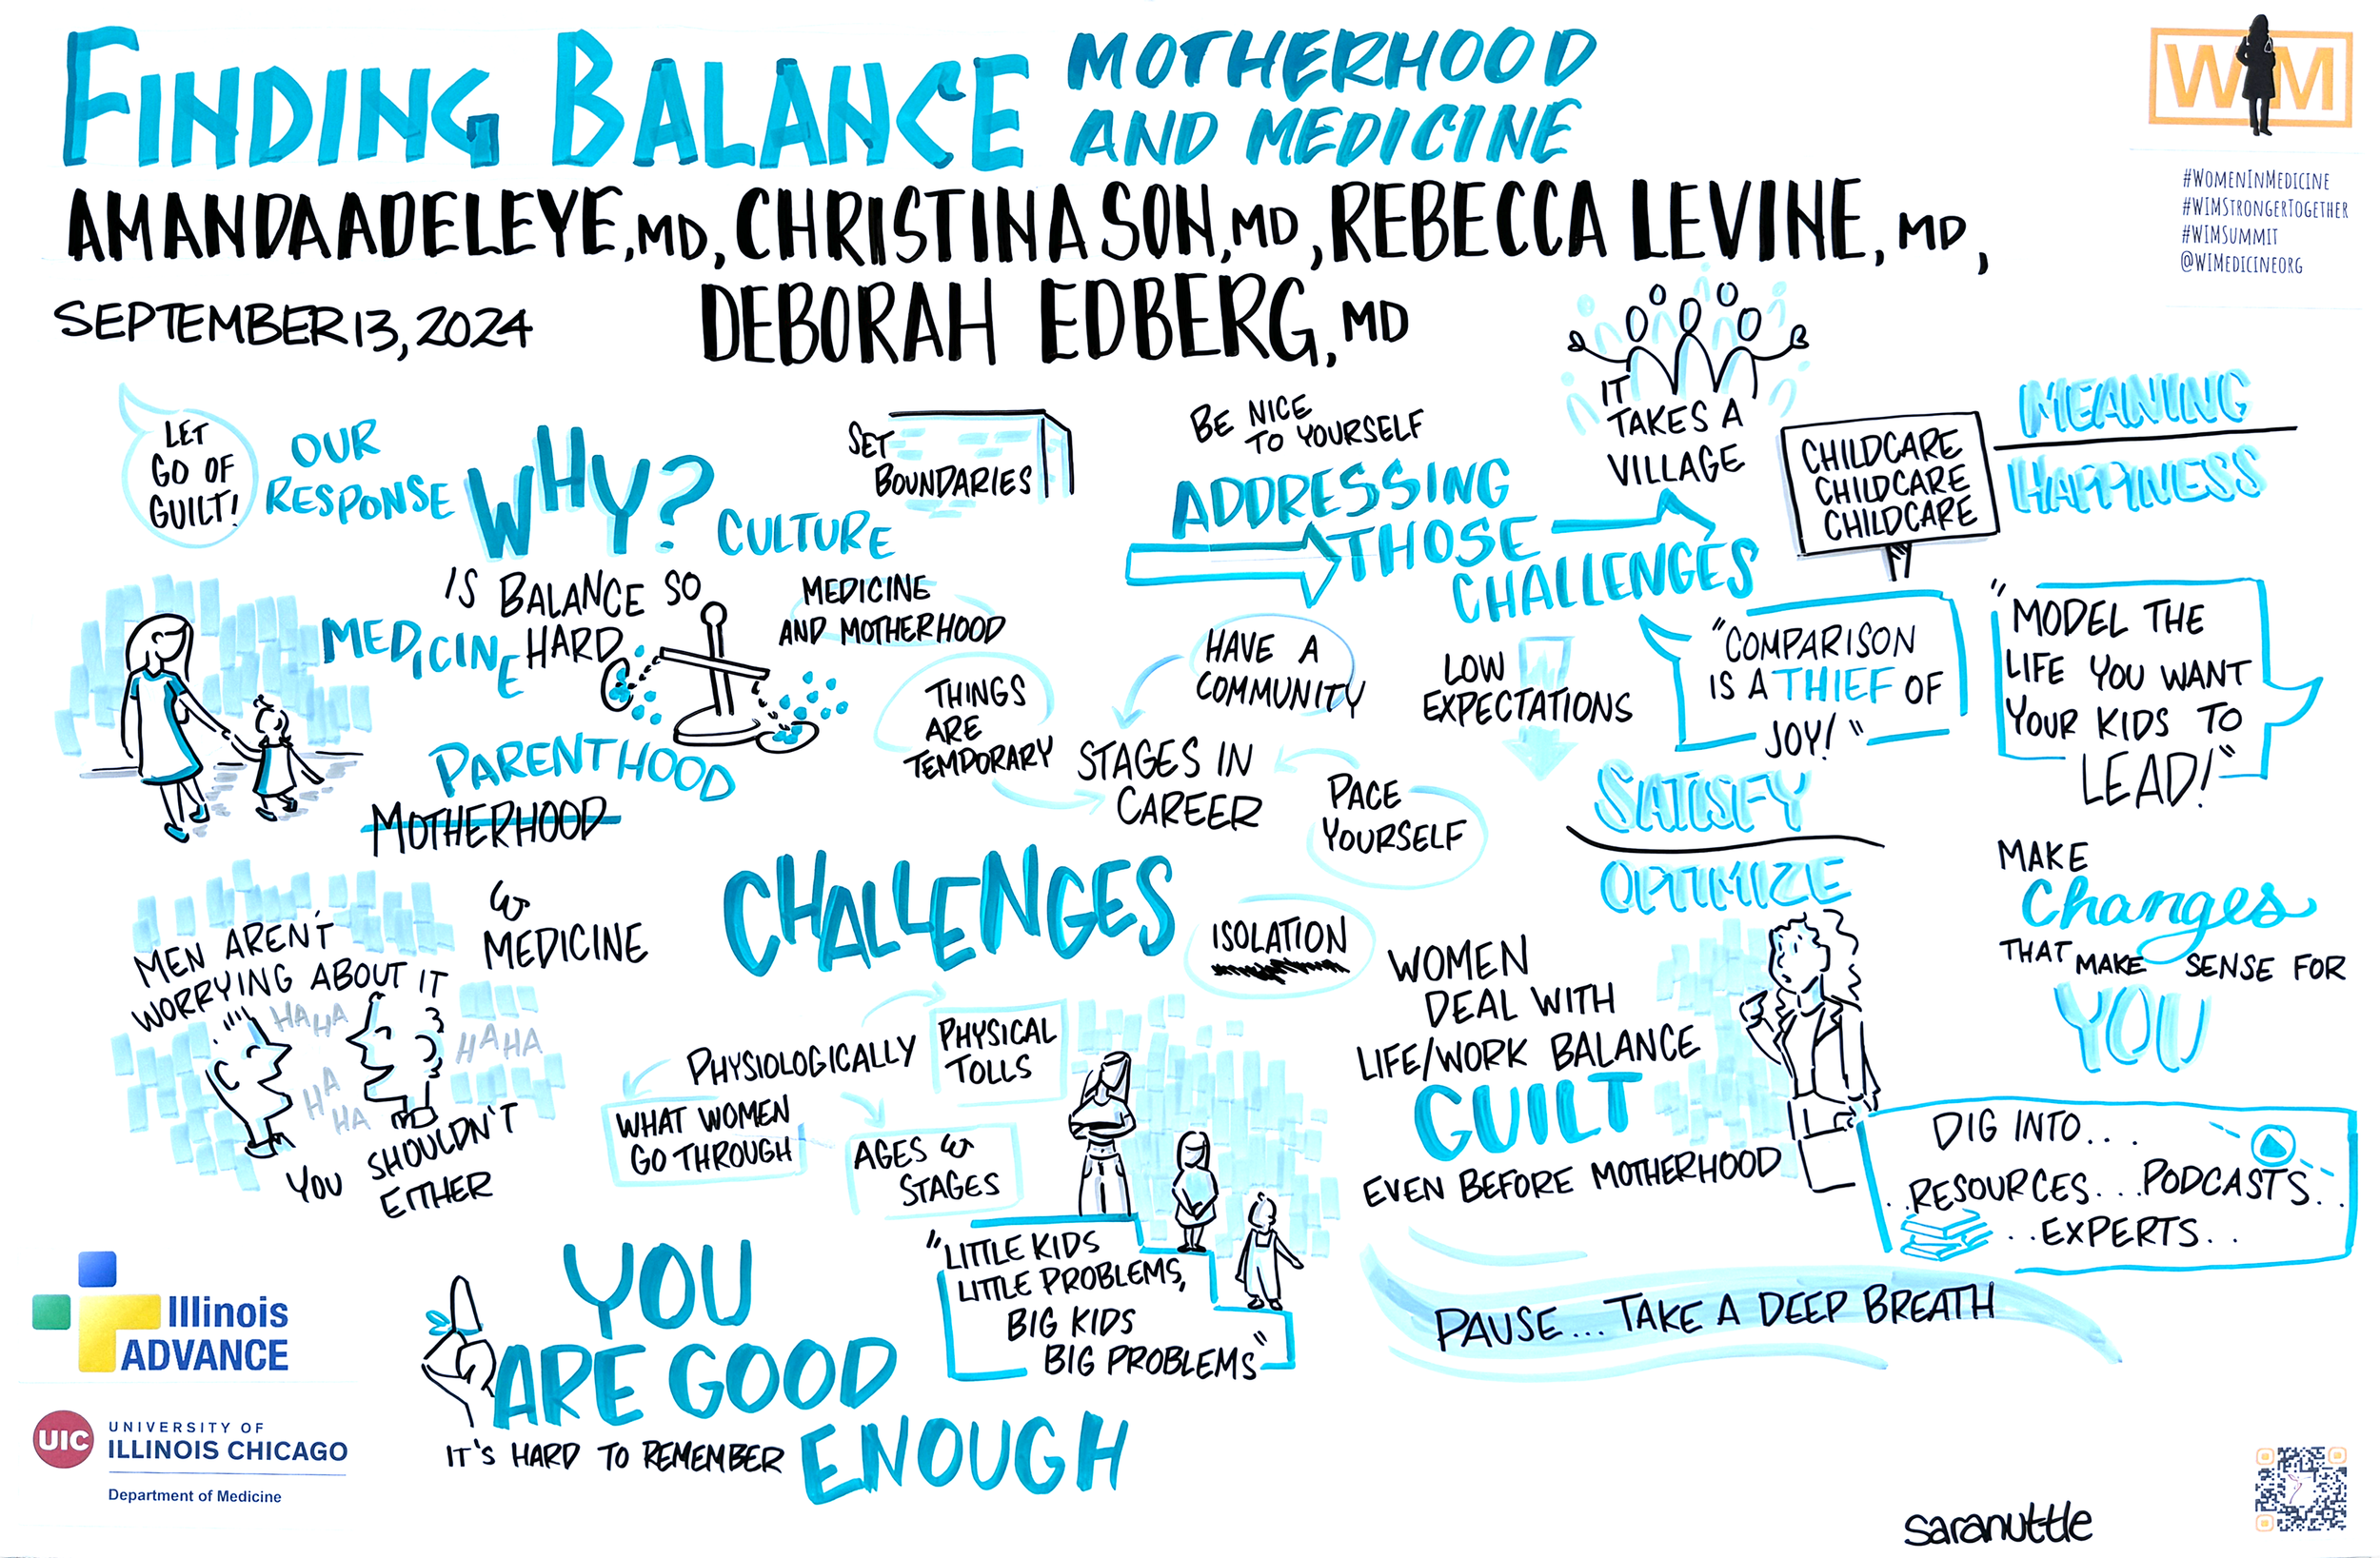 FINDING BALANCE
MOTHERHOOD
AND MEDICINE
AMANDA ADELEYE, MD, CHRISTINA SON, MD, REBECCA LEVINE, MD,
DEBORAH EDBERG, MD
SEPTEMBER 13, 2024
WIM
#WOMENINMEDICINE
#WIMSTRONGERTOGETHER
#WIMSUMMIT
@WIMEDICINEORG
LET
GO OF
GUILT!
OUR
RESPONSE
WHY?
IS BALANCE SO
HARD
MEDICINE
CULTURE
MEDICINE
AND MOTHERHOOD
SET
BOUNDARIES
PARENTHOOD
MOTHERHOOD
& MEDICINE
MEN AREN'T
WORRYING ABOUT IT
HAHA
HAHA
HA
HA
YOU SHOULDN'T
EITHER
BE NICE
TO YOURSELF
ADDRESSING
THOSE
CHALLENGES
IT
TAKES A
VILLAGE
CHILDCARE
CHILDCARE
CHILDCARE
MEANING
HAPPINESS
THINGS
ARE
TEMPORARY
HAVE A
COMMUNITY
STAGES IN
CAREER
PACE
YOURSELF
LOW
EXPECTATIONS
"COMPARISON
IS A THIEF OF
JOY!"
"MODEL THE
LIFE YOU WANT
YOUR KIDS TO
LEAD!"
SATISFY
OPTIMIZE
MAKE
Changes
THAT MAKE SENSE FOR
YOU
CHALLENGES
ISOLATION
PHYSIOLOGICALLY
PHYSICAL
TOLLS
WHAT WOMEN
GO THROUGH
AGES &
STAGES
"LITTLE KIDS
LITTLE PROBLEMS,
BIG KIDS
BIG PROBLEMS"
WOMEN
DEAL WITH
LIFE/WORK BALANCE
GUILT
EVEN BEFORE MOTHERHOOD
DIG INTO...
..RESOURCES...PODCASTS..
..EXPERTS..
PAUSE...TAKE A DEEP BREATH
YOU
ARE GOOD
ENOUGH
IT'S HARD TO REMEMBER
Illinois
ADVANCE
UIC
UNIVERSITY OF
ILLINOIS CHICAGO
Department of Medicine
saranuttle